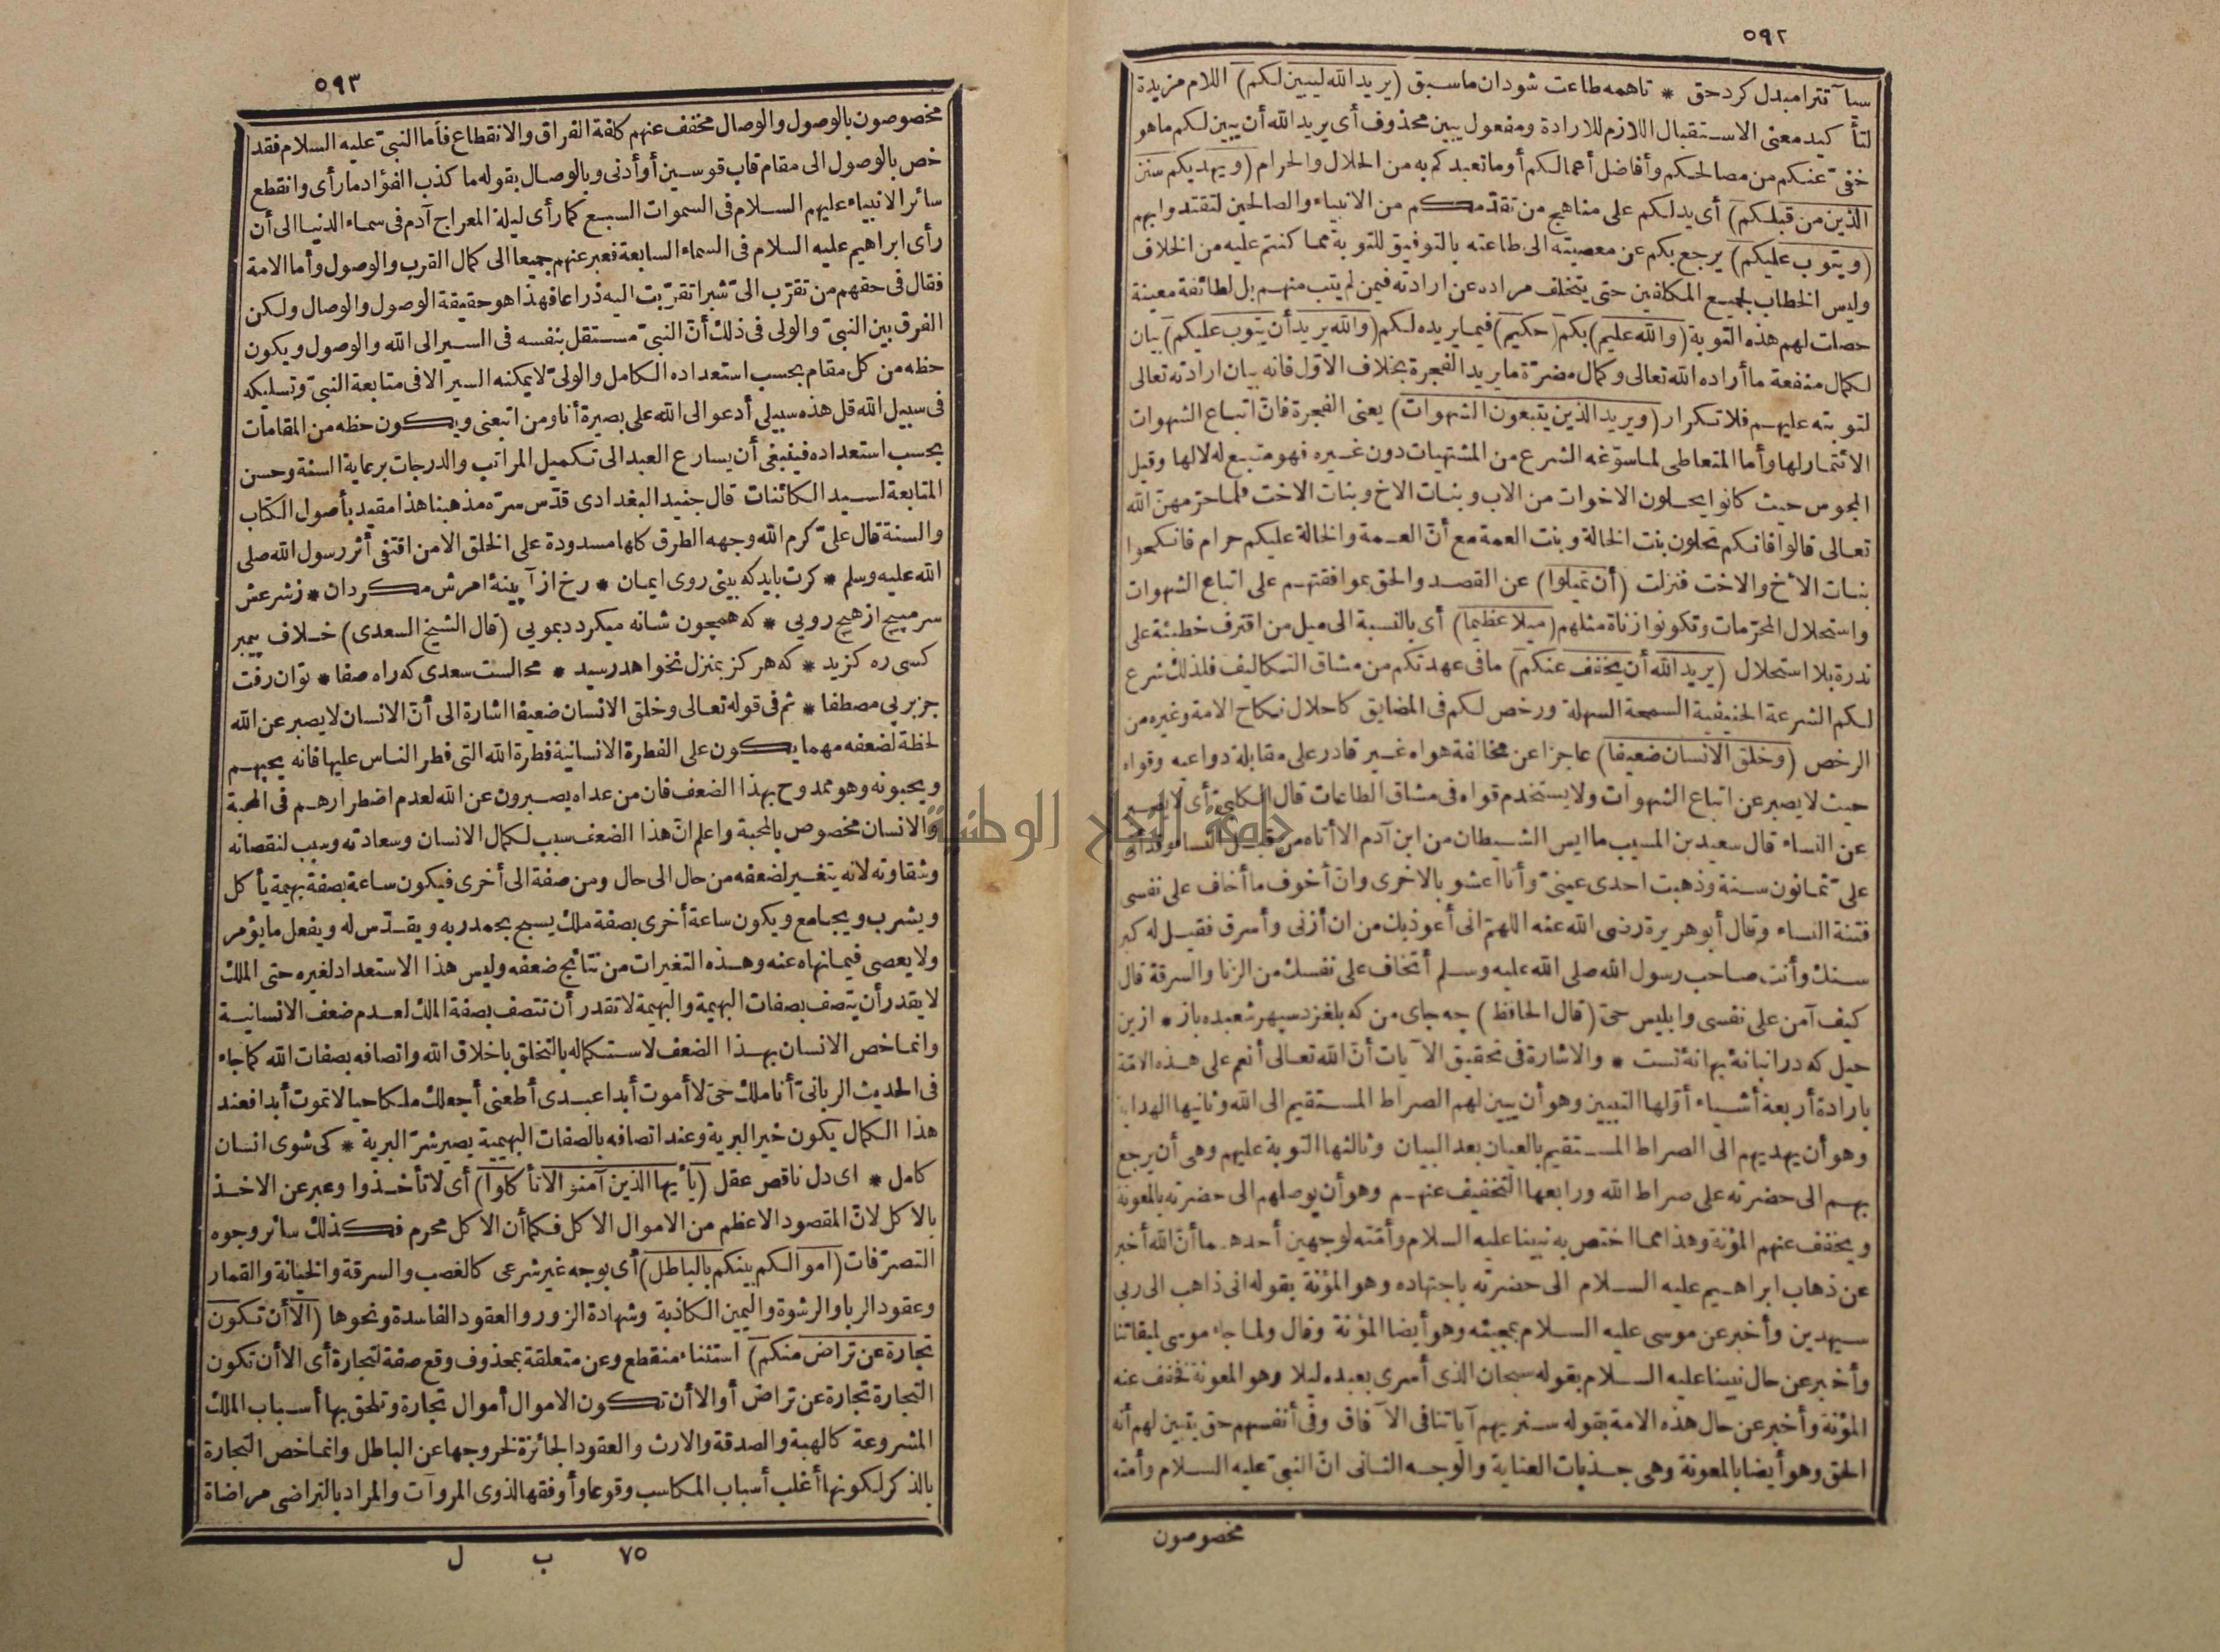 ٥٩٢
سيآتترا مبدل كرد حق * تاهمه طاعت شودان ماسبق (يريد الله ليبين لكم) اللام مزيدة
لتأكيد معنى الاستقبال اللازم للارادة ومفعول يبين محذوف أى يريد الله أن يبين لكم ما هو
خفىّ عنكم من مصالحكم وأفاضل أعمالكم أوما تعبدكم به من الحلال والحرام (ويهديكم سنن
الذين من قبلكم) أى يدلكم على مناهج من تقدّمكم من الانبياء والصالحين لتقتدوا بهم
(ويتوب عليكم) يرجع بكم عن معصيته الى طاعته بالتوفيق للتوبة مما كنتم عليه من الخلاف
وليس الخطاب لجميع المكلفين حتى يتخلف مراده عن ارادته فيمن لم يتب منهم بل لطائفة معينة
حصلت لهم هذه التوبة (والله عليم) بكم (حكيم) فيما يريده لكم (والله يريد أن يتوب عليكم) بيان
لكمال منفعة ما أراده الله تعالى وكمال مضرّة ما يريد الفجرة بخلاف الاوّل فانه بيان ارادته تعالى
لتوبته عليهم فلا تكرار (ويريد الذين يتبعون الشهوات) يعنى الفجرة فانّ اتباع الشهوات
الائتمار لها وأما المتعاطى لما سوّغه الشرع من المشتهيات دون غيره فهو متبع له لا لها وقيل
المجوس حيث كانوا يحلون الاخوات من الاب وبنات الاخ وبنات الاخت فلما حرّمهنّ الله
تعالى قالوا فانكم تحلون بنت الخالة وبنت العمة مع أنّ العمة والخالة عليكم حرام فانكحوا
بنات الأخ والاخت فنزلت (أن تميلوا) عن القصد والحق بموافقتهم على اتباع الشهوات
واستحلال المحرّمات وتكونوا زناة مثلهم (ميلا عظيما) أى بالنسبة الى ميل من اقترف خطيئة على
ندرة بلا استحلال (يريد الله أن يخفف عنكم) ما فى عهدتكم من مشاق التكاليف فلذلك شرع
لكم الشرعة الحنيفية السمحة السهلة ورخص لكم فى المضايق كاحلال نكاح الامة وغيره من
الرخص (وخلق الانسان ضعيفا) عاجزا عن مخالفة هواه غير قادر على مقابلة دواعيه وقواه
حيث لا يصبر عن اتباع الشهوات ولا يستخدم قواه فى مشاق الطاعات قال الكلبىّ أى لا يصبر
عن النساء قال سعيد بن المسيب ما ايس الشيطان من ابن آدم الا أتاه من قبل النساء وقد أتى
علىّ ثمانون سنة وذهبت احدى عينىّ وأنا اعشو بالاخرى وانّ أخوف ما أخاف على نفسى
فتنة النساء وقال أبو هريرة رضى الله عنه اللهمّ انى أعوذ بك من ان أزنى وأسرق فقيل له كبر
سنك وأنت صاحب رسول الله صلى الله عليه وسلم أتخاف على نفسك من الزنا والسرقة قال
كيف آمن على نفسى وابليس حىّ (قال الحافظ) چه جاى من كه بلغزد سپهر شعبده باز * ازين
حيل كه در انبانهٔ بهانهٔ تست * والاشارة فى تحقيق الآيات أنّ الله تعالى أنعم على هذه الامّة
بارادة أربعة أشياء أوّلها التبيين وهو أن يبين لهم الصراط المستقيم الى الله وثانيها الهداية
وهو أن يهديهم الى الصراط المستقيم بالعيان بعد البيان وثالثها التوبة عليهم وهى أن يرجع
بهم الى حضرته على صراط الله ورابعها التخفيف عنهم وهو أن يوصلهم الى حضرته بالمعونة
ويخفف عنهم المؤنة وهذا مما اختص به نبينا عليه السلام وأمّته لوجهين أحدهما أنّ الله أخبر
عن ذهاب ابراهيم عليه السلام الى حضرته باجتهاده وهو المؤنة بقوله انى ذاهب الى ربى
سيهدين وأخبر عن موسى عليه السلام بمجيئه وهو أيضا المؤنة وقال ولما جاء موسى لميقاتنا
وأخبر عن حال نبينا عليه السلام بقوله سبحان الذى أسرى بعبده ليلا وهو المعونة فخفف عنه
المؤنة وأخبر عن حال هذه الامة بقوله سنريهم آياتنا فى الآفاق وفى أنفسهم حتى يتبين لهم أنه
الحق وهو أيضا بالمعونة وهى جذبات العناية والوجه الثانى انّ النبىّ عليه السلام وأمته
مخصوصون
٥٩٣
مخصوصون بالوصول والوصال مخفف عنهم كلفة الفراق والانقطاع فأما النبىّ عليه السلام فقد
خص بالوصول الى مقام قاب قوسين أو أدنى وبالوصال بقوله ما كذب الفؤاد ما رأى وانقطع
سائر الانبياء عليهم السلام فى السموات السبع كما رأى ليلة المعراج آدم فى سماء الدنيا الى أن
رأى ابراهيم عليه السلام فى السماء السابعة فعبر عنهم جميعا الى كمال القرب والوصول وأما الامة
فقال فى حقهم من تقرّب الىّ شبرا تقرّبت اليه ذراعا فهذا هو حقيقة الوصول والوصال ولكن
الفرق بين النبىّ والولى فى ذلك أنّ النبىّ مستقل بنفسه فى السير الى الله والوصول ويكون
حظه من كل مقام بحسب استعداده الكامل والولىّ لا يمكنه السير الا فى متابعة النبىّ وتسليكه
فى سبيل الله قل هذه سبيلى أدعو الى الله على بصيرة أنا ومن اتبعنى ويكون حظه من المقامات
بحسب استعداده فينبغى أن يسارع العبد الى تكميل المراتب والدرجات برعاية السنة وحسن
المتابعة لسيد الكائنات قال جنيد البغدادى قدّس سرّه مذهبنا هذا مقيد بأصول الكتاب
والسنة قال علىّ كرم الله وجهه الطرق كلها مسدودة على الخلق الا من اقتفى أثر رسول الله صلى
الله عليه وسلم * كرت بايد كه بينى روى ايمان * رخ از آيينهٔ امرش مكردان * ز شرعش
سر مپيچ از هيچ رويى * كه همچون شانه ميكرد ديمويى (قال الشيخ السعدى) خلاف پيمبر
كسى ره كزيد * كه هركز بمنزل نخواهد رسيد * محالست سعدى كه راه صفا * توان رفت
جز بر پى مصطفا * ثم فى قوله تعالى وخلق الانسان ضعيفا اشارة الى أنّ الانسان لا يصبر عن الله
لحظة لضعفه مهما يكون على الفطرة الانسانية فطرة الله التى فطر الناس عليها فانه يحبهم
ويحبونه وهو ممدوح بهذا الضعف فان من عداه يصبرون عن الله لعدم اضطرارهم فى المحبة
والانسان مخصوص بالمحبة واعلم انّ هذا الضعف سبب لكمال الانسان وسعادته وسبب لنقصانه
وشقاوته لانه يتغير لضعفه من حال الى حال ومن صفة الى أخرى فيكون ساعة بصفة بهيمة يأكل
ويشرب ويجامع ويكون ساعة أخرى بصفة ملك يسبح بحمد ربه ويقدّس له ويفعل ما يؤمر
ولا يعصى فيما نهاه عنه وهذه التغيرات من نتائج ضعفه وليس هذا الاستعداد لغيره حتى الملك
لا يقدر أن يتصف بصفات البهيمة والبهيمة لا تقدر أن تتصف بصفة الملك لعدم ضعف الانسانية
وانما خص الانسان بهذا الضعف لاستكماله بالتخلق باخلاق الله واتصافه بصفات الله كما جاء
فى الحديث الربانىّ أنا ملك حىّ لا أموت أبدا عبدى أطعنى أجعلك ملكا حيا لا تموت أبدا فعند
هذا الكمال يكون خير البرية وعند اتصافه بالصفات البهيمية يصير شرّ البرية * كى شوى انسان
كامل * اى دل ناقص عقل (يا أيها الذين آمنوا لا تأكلوا) أى لا تأخذوا وعبر عن الاخذ
بالاكل لانّ المقصود الاعظم من الاموال الاكل فكما أن الاكل محرم فكذلك سائر وجوه
التصرّفات (أموالكم بينكم بالباطل) أى بوجه غير شرعى كالغصب والسرقة والخيانة والقمار
وعقود الربا والرشوة واليمين الكاذبة وشهادة الزور والعقود الفاسدة ونحوها (الا أن تكون
تجارة عن تراض منكم) استثناء منقطع وعن متعلقة بمحذوف وقع صفة لتجارة أى الا أن تكون
التجارة تجارة عن تراض أو الا أن تكون الاموال أموال تجارة وتلحق بها أسباب الملك
المشروعة كالهبة والصدقة والارث والعقود الجائزة لخروجها عن الباطل وانما خص التجارة
بالذكر لكونها أغلب أسباب المكاسب وقوعا وأوفقها لذوى المروآت والمراد بالتراضى مراضاة
٧٥ ب ل
جامعة النجاح الوطنية